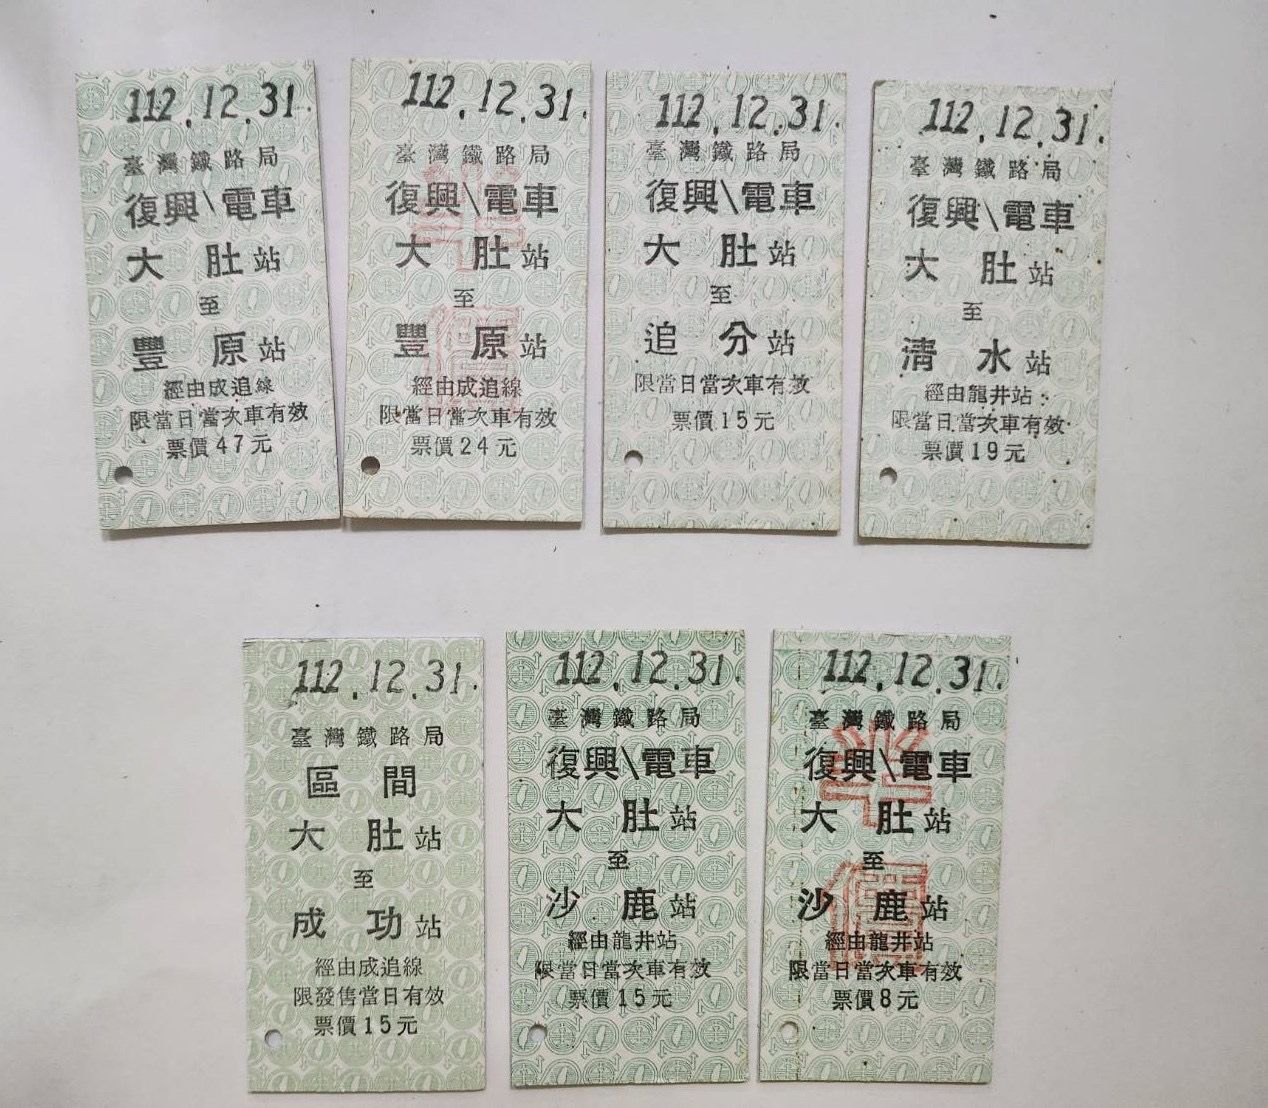 112.12.31.
臺灣鐵路局
復興\電車
大肚站
至
豐原站
經由成追線
限當日當次車有效
票價47元
112.12.31.
臺灣鐵路局
復興\電車
大肚站
至
豐原站
經由成追線
限當日當次車有效
票價24元
半價
112.12.31.
臺灣鐵路局
復興\電車
大肚站
至
追分站
限當日當次車有效
票價15元
112.12.31.
臺灣鐵路局
復興\電車
大肚站
至
清水站
經由龍井站
限當日當次車有效
票價19元
112.12.31.
臺灣鐵路局
區間
大肚站
至
成功站
經由成追線
限發售當日有效
票價15元
112.12.31.
臺灣鐵路局
復興\電車
大肚站
至
沙鹿站
經由龍井站
限當日當次車有效
票價15元
112.12.31.
臺灣鐵路局
復興\電車
大肚站
至
沙鹿站
經由龍井站
限當日當次車有效
票價8元
半價